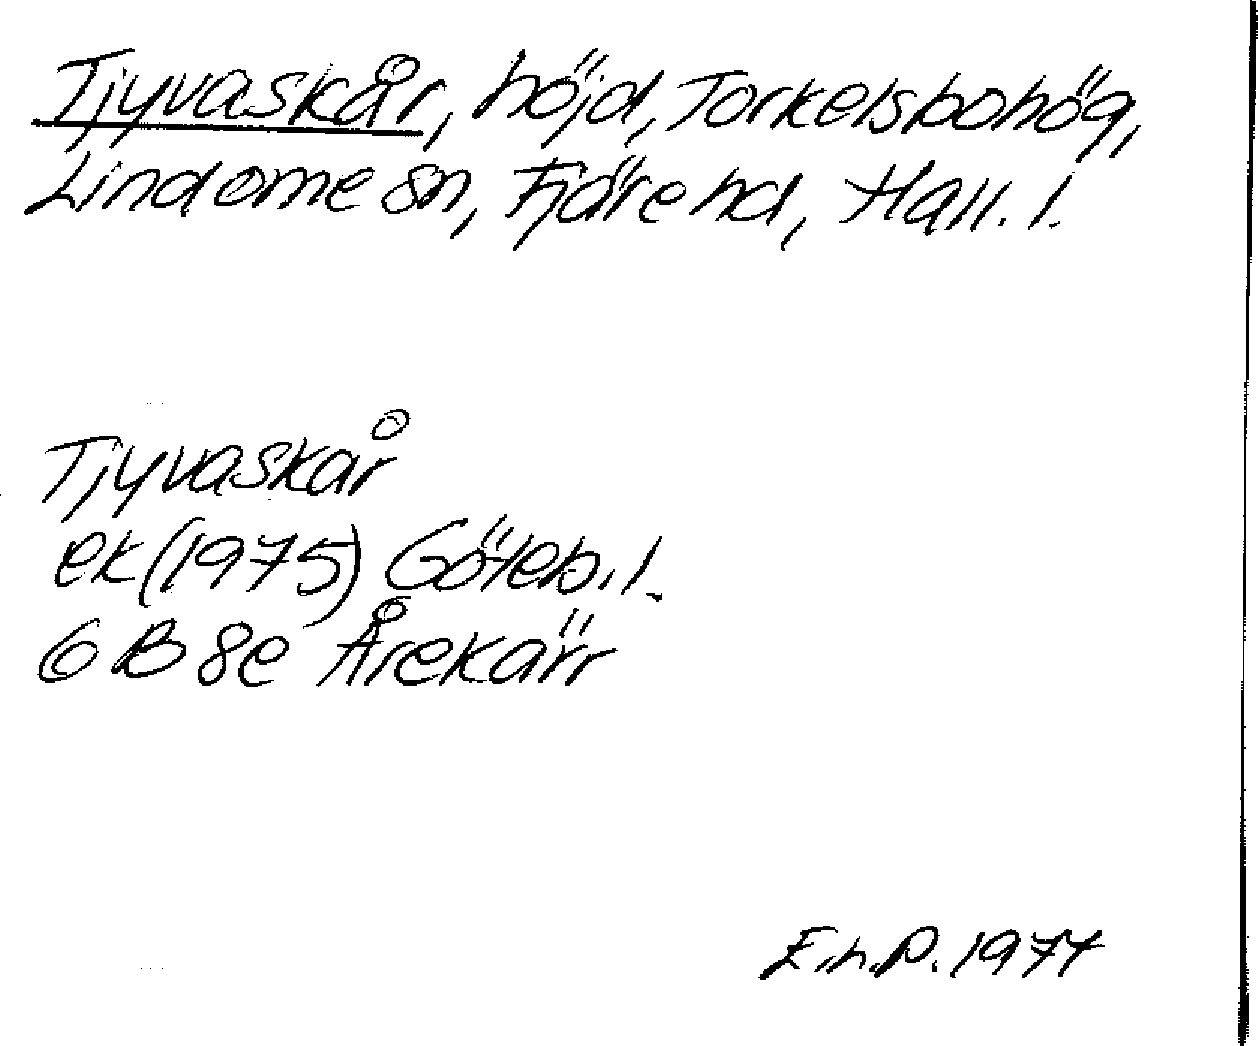 Tjyvaskår, höjd, Torkelsbohög,
Lindome sn, Fjäre hd, Hall. l.
Tjyvaskår
ek (1975) Göteb. l.
6 B 8e Årekärr
1977